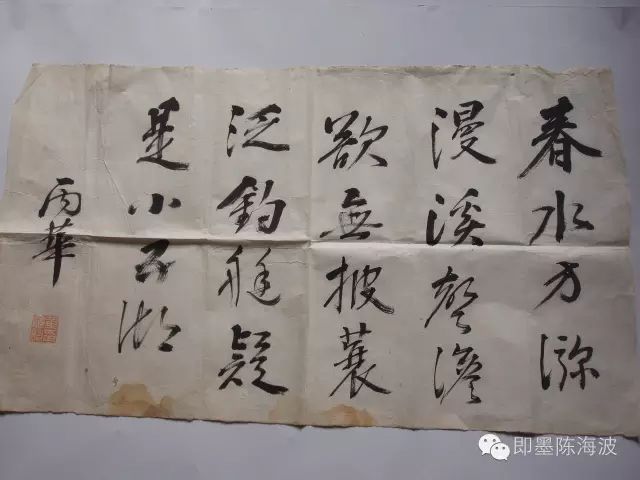 春水方瀰
漫溪聲澹
欲無披蓑
泛釣艇疑
是小五湖
丙華
即墨陈海波